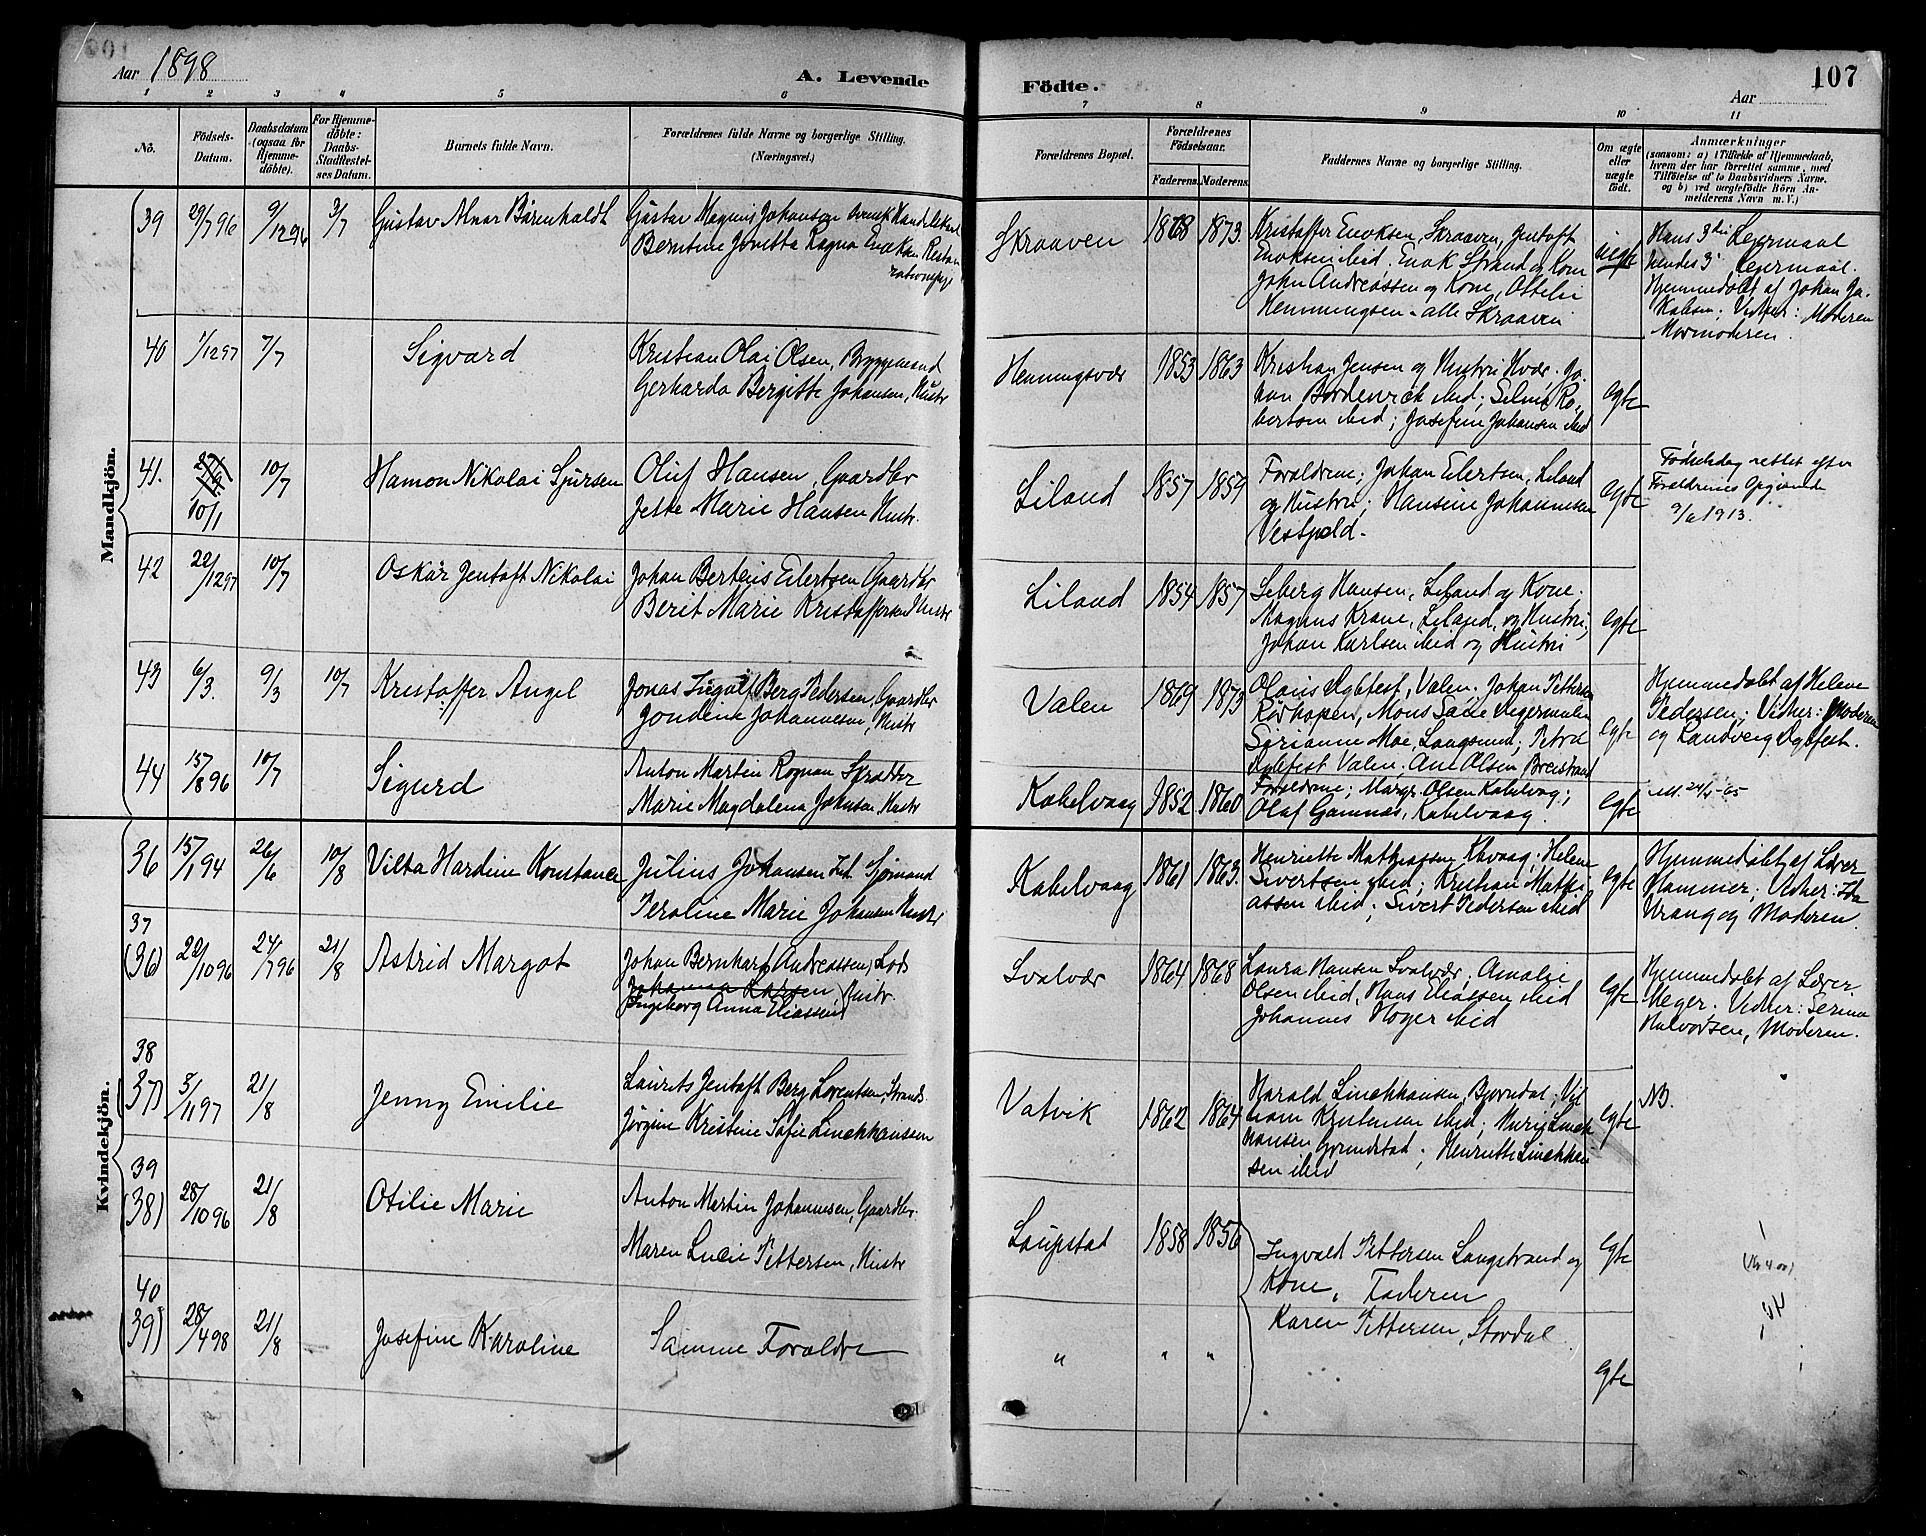 Aar 1898
A. Levende
Födte.
107
Aar
1 2 3 4 5 6 7 8 9 10 11
No.
Födsels-Datum.
Daabsdatum (ogsaa for Hjemme-döbte).
For Hjemme-döbte: Daabs-Stadfæstel-ses Datum.
Barnets fulde Navn.
Forældrenes fulde Navne og borgerlige Stilling.
(Næringsvei.)
Forældrenes Bopæl.
Forældrenes Födselsaar.
Faderens. Moderens.
Faddernes Navne og borgerlige Stilling.
Om ægte eller uægte födt.
Anmærkninger
(saasom: a) i Tilfælde af Hjemmedaab, hvem der har forrettet samme, med Tilföielse af to Daabsvidners Navne, og b) ved uægtefödte Börn An-melderens Navn m. V.)
Mandkjön.
39 29/7 96 9/12 96 3/7 Gustav Alnar Bärenholdt
Gustav Magnus Johanson
Berntine Jonetta Ragna
Skraaven 1868 1873.
Kristoffer Enoksen, Skraaven, Jentoft
Enoksen ibid. Enok Strand og Kone
John Andreassen og Kone, Ottilie
Hemmingsen - alle Skraaven
uegte
Hans 3die Leiermaal
hendes 3' Leiermaal.
Hjemmedøbt af Johan Ja-
kobsen; Vidner: Moderen
Mormoderen.
40 1/12 97 7/7 Sigvard
Kristian Olai Olsen, Byggemand
Gerharda Bergitte Johansen, Hustr
Henningsvær 1853 1863
Kristian Jensen og Hustru Hvær. Jo-
han Bordevick ibid; Selma Ro-
bertsen ibid; Josefine Johansen ibid
egte
41. 10/1 10/7 Hamon Nikolai Sjursen
Oluf Hansen, Gaardbr
Jette Marie Hansen Hustr.
Liland 1857 1859
Forældrene; Johan Eilertsen, Liland
og Hustru; Hansine Johannesen
Vestpold.
egte
Fødselsdag rettet efter
Forældrenes Opgivende
9/6 1913.
42 22/12 97 10/7 Oskar Jentoft Nikolai
Johan Berteus Eilertsen, Gaardbr
Berit Marie Kristoffersen Hustr
Liland 1854 1857
Seberg Hansen, Liland og Kone.
Magnus Krane, Liland, og Hustru;
Johan Karlsen ibid og Hustru
egte
43 6/3. 9/3 10/7 Kristoffer Angel
Jonas Ingolf Berg Pedersen, Gaardbr
Jondine Johannesen, Hustr
Valen 1869 1873
Olaus Agefest, Valen. Johan Pettersen
Rørhopen, Mons
Moe, Langsund; Petra
Valen; Ane Olsen, Breistrand
egte
Hjemmedøbt af Helene
Pedersen; Vidner: Moderen
og
44 15/8 96 10/7 Sigurd
Anton Martin Rognan Skrædder
Marie Magdalena Johnson Hustr
Kabelvaag 1852 1860
Forældrene; Margr. Olsen Kabelvaag;
Olaf Gamnæs, Kabelvaag.
egte
Kvindekjön.
36 15/1 94 26/6 10/8 Vilta Hardine Konstance
Julius Johansen Sjømand
Peroline Marie Johansen Hustr
Kabelvaag 1861 1863.
Henriette Mathiassen Kbvaag; Helene
Sivertsen ibid; Kristian Mathi-
assen ibid; Sivert Pedersen ibid
egte
Hjemmedøbt af Lærer
Hammer; Vidner: Ida
Vrang og Moderen.
37
(36) 22/10 96 24/7 96 21/8 Astrid Margot
Johan Bernhard Andreassen, Lods
Johanna Larsen, Hustr.
Ingeborg Anna Eliassen
Svolvær 1864 1868
Laura Hansen Svolvær; Amalie
Olsen ibid, Hans Eliassen ibid
Johannes Høyer ibid
egte
Hjemmedøbt af Lærer
Meger. Vidner: Serine
Halvorsen, Moderen.
38
37) 3/11 97 21/8 Jenny Emilie
Laurits Jentoft Berg Lorentsen, Strands.
Jørgine Kristine Sofie Linekhausen
Vatvik 1862 1864
Harald Linekhausen, Bjorndal; Vil-
ibid; Marie Linek
hausen Grundstad; Henriette Linekhau-
sen ibid
egte
NB.
39
(38) 28/10 96 21/8 Otilie Marie
Anton Martin Johannesen, Gaardbr.
Maren Lucie Pettersen, Hustr
Laupstad 1858 1856
Ingvald Pettersen Langstrand og
Kone, Faderen
Karen Pettersen, Stordal.
egte
40
(39) 28/4 98 21/8 Josefine Karoline
Samme Forældre
" " "
egte